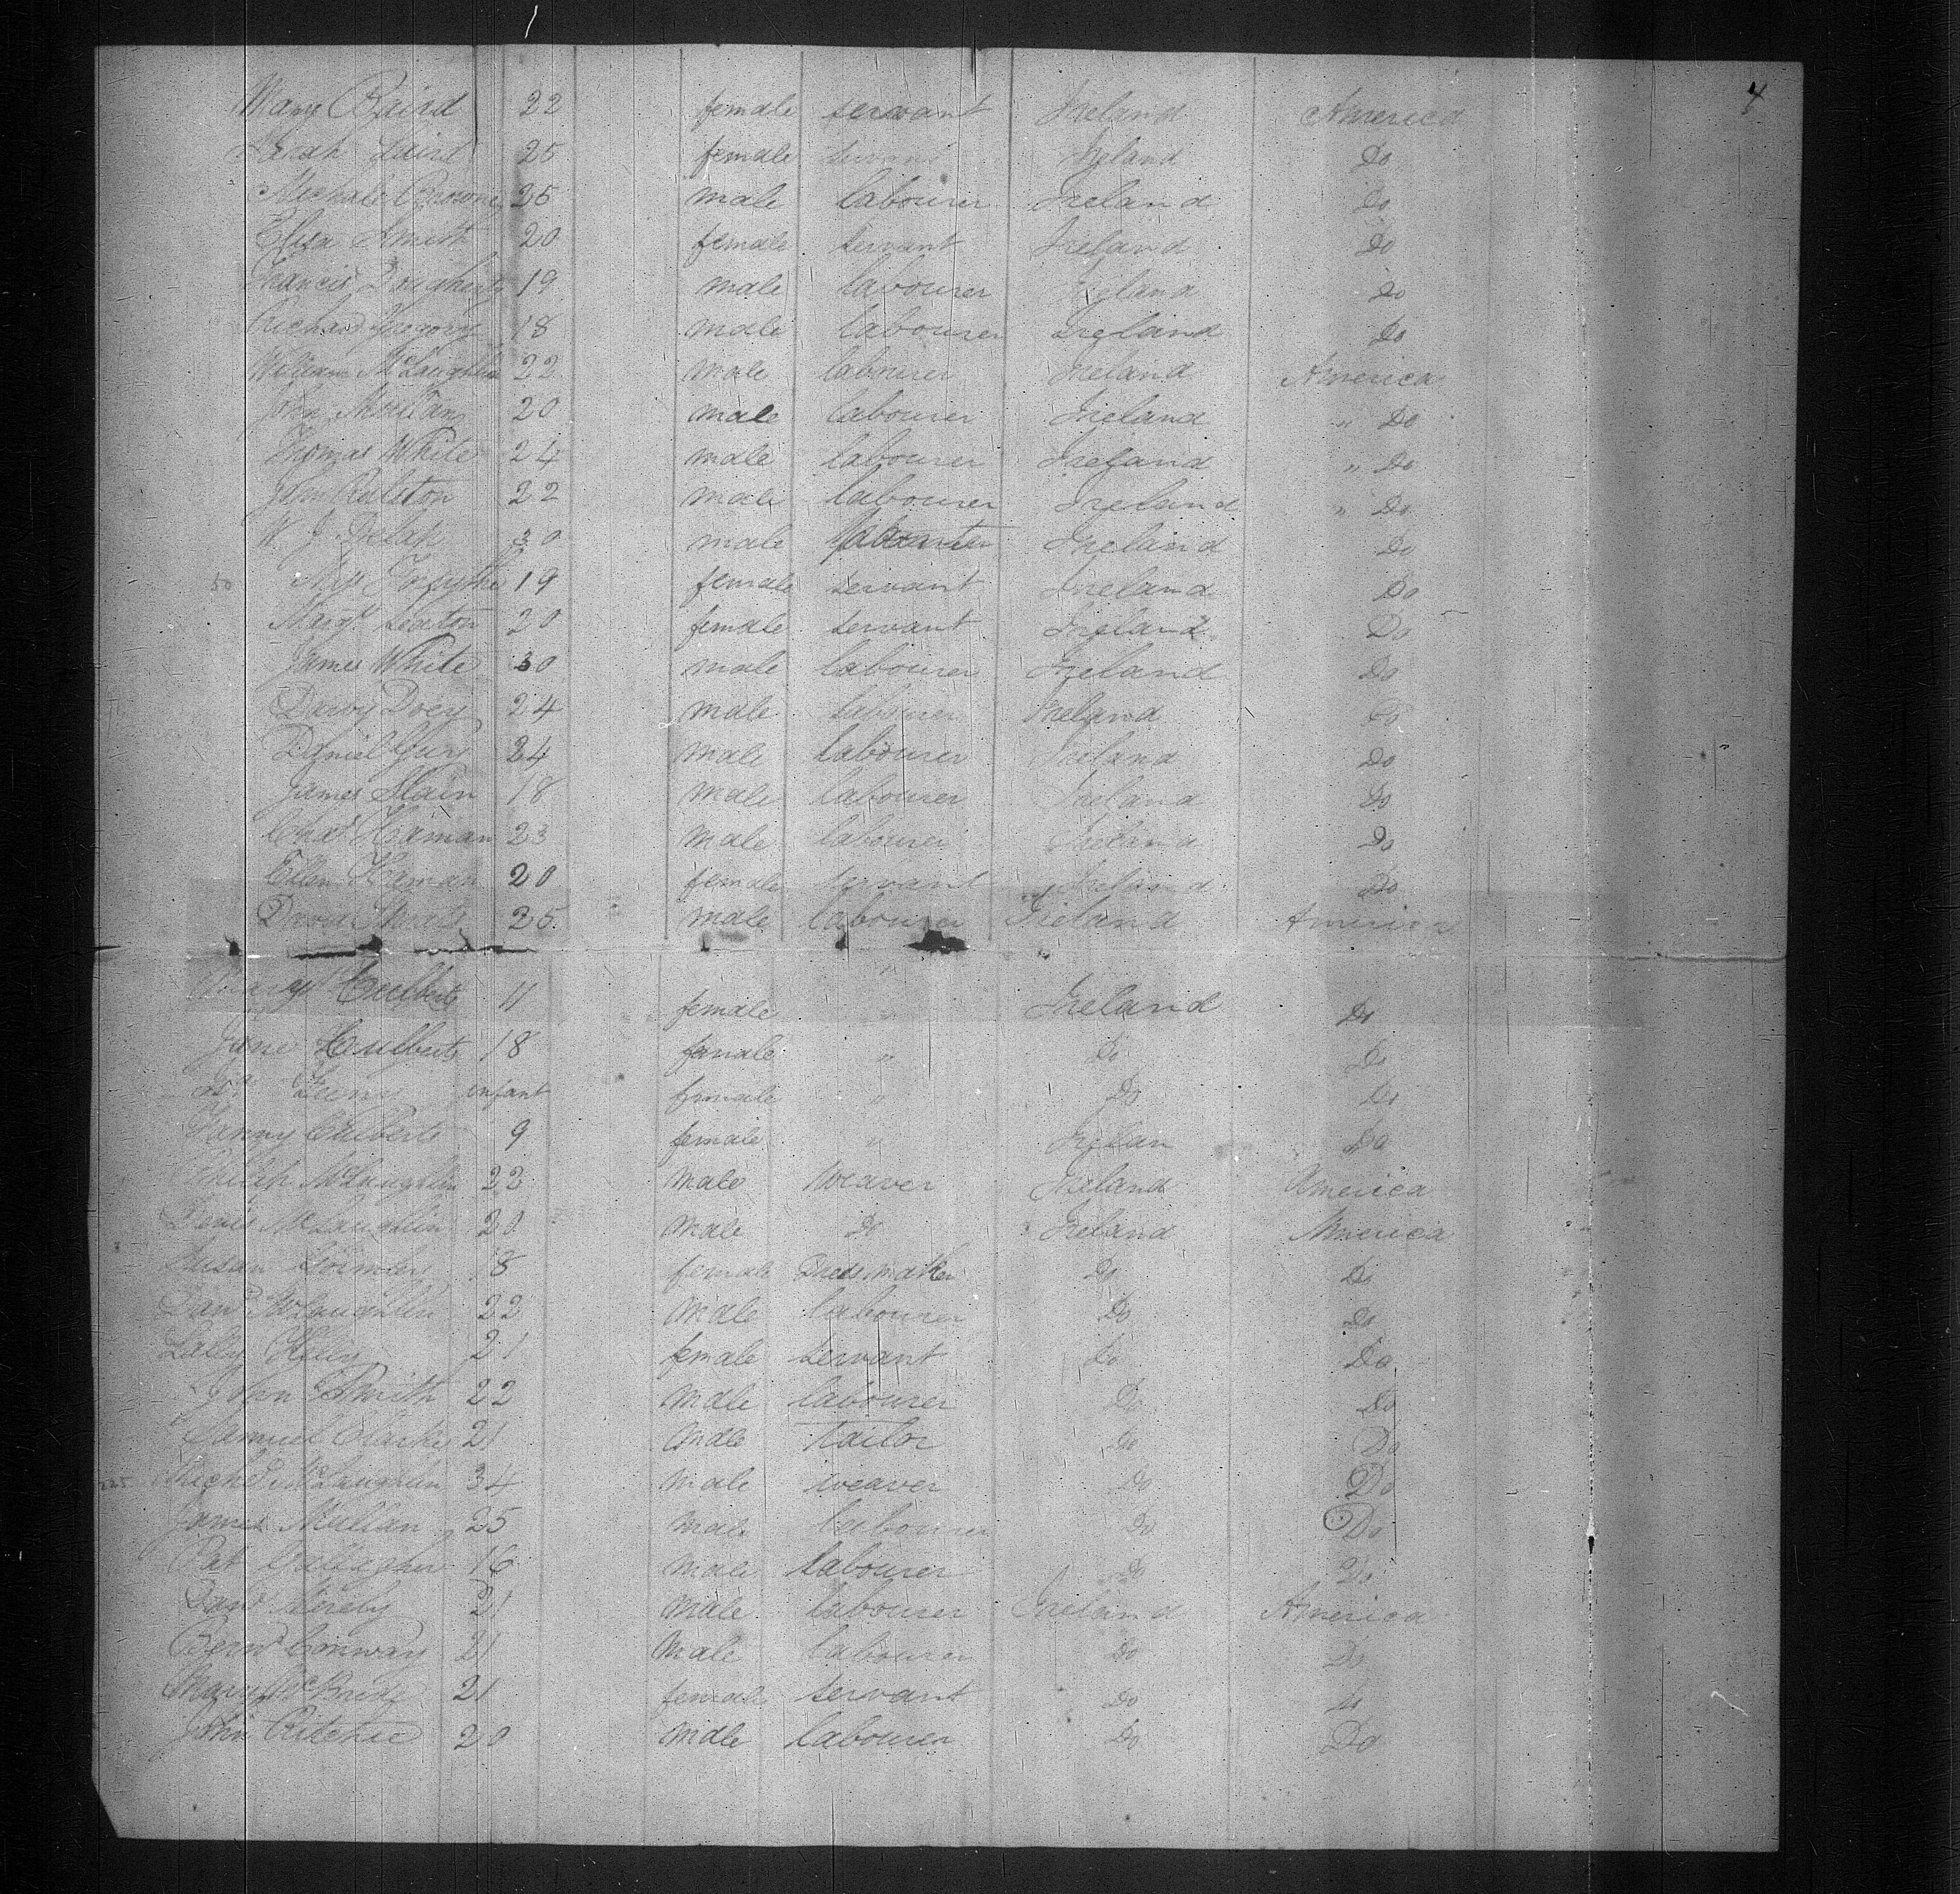 4
Mary Baird 22 female servant Ireland America
Sarah Laird 25 female servant Ireland Do
Michale Browne 25 male labourer Ireland Do
Eliza Smith 20 female servant Ireland Do
Francis Dougherty 19 male labourer Ireland Do
Richard Gregory 18 male labourer Ireland Do
William McLaughlin 22 male labourer Ireland America
John 20 male labourer Ireland " Do
Thomas White 24 male labourer Ireland " Do
John Ralston 22 male labourer Ireland " Do
W. J. Delap 30 male Ireland Do
50 Forsythe 19 female servant Ireland Do
Margt Seaton 20 female servant Ireland Do
James White 30 male labourer Ireland Do
Davy Doey 24 male labourer Ireland Do
Daniel 24 male labourer Ireland Do
James Slain 18 male labourer Ireland Do
Chas Haman 23 male labourer Ireland Do
Ellen Haman 20 female servant Ireland Do
David 25 male labourer Ireland America
Margt Culberts 11 female " Ireland Do
Jane Culberts 18 female " Do Do
infant female " Do Do
Fanny Culberts 9 female " Irelan Do
Philip McLaughlin 22 male weaver Ireland America
Denis McLaughlin 20 male Do Ireland America
Susan Gormley 18 female Dressmaker Do Do
Danl McLaughlin 22 male labourer Do Do
Lally 21 female servant Do Do
John Smith 22 male labourer Do Do
Samuel Clarke 21 male tailor Do Do
225 Michel McLaughlin 34 male weaver Do Do
James Mullan 25 male labourer Do Do
Pat Gallagher 16 male labourer Do Do
Danl 21 male labourer Ireland America
Bernd Conway 21 male labourer Do Do
Mary McBride 21 female servant Do Do
John Ritchie 20 male labourer Do Do